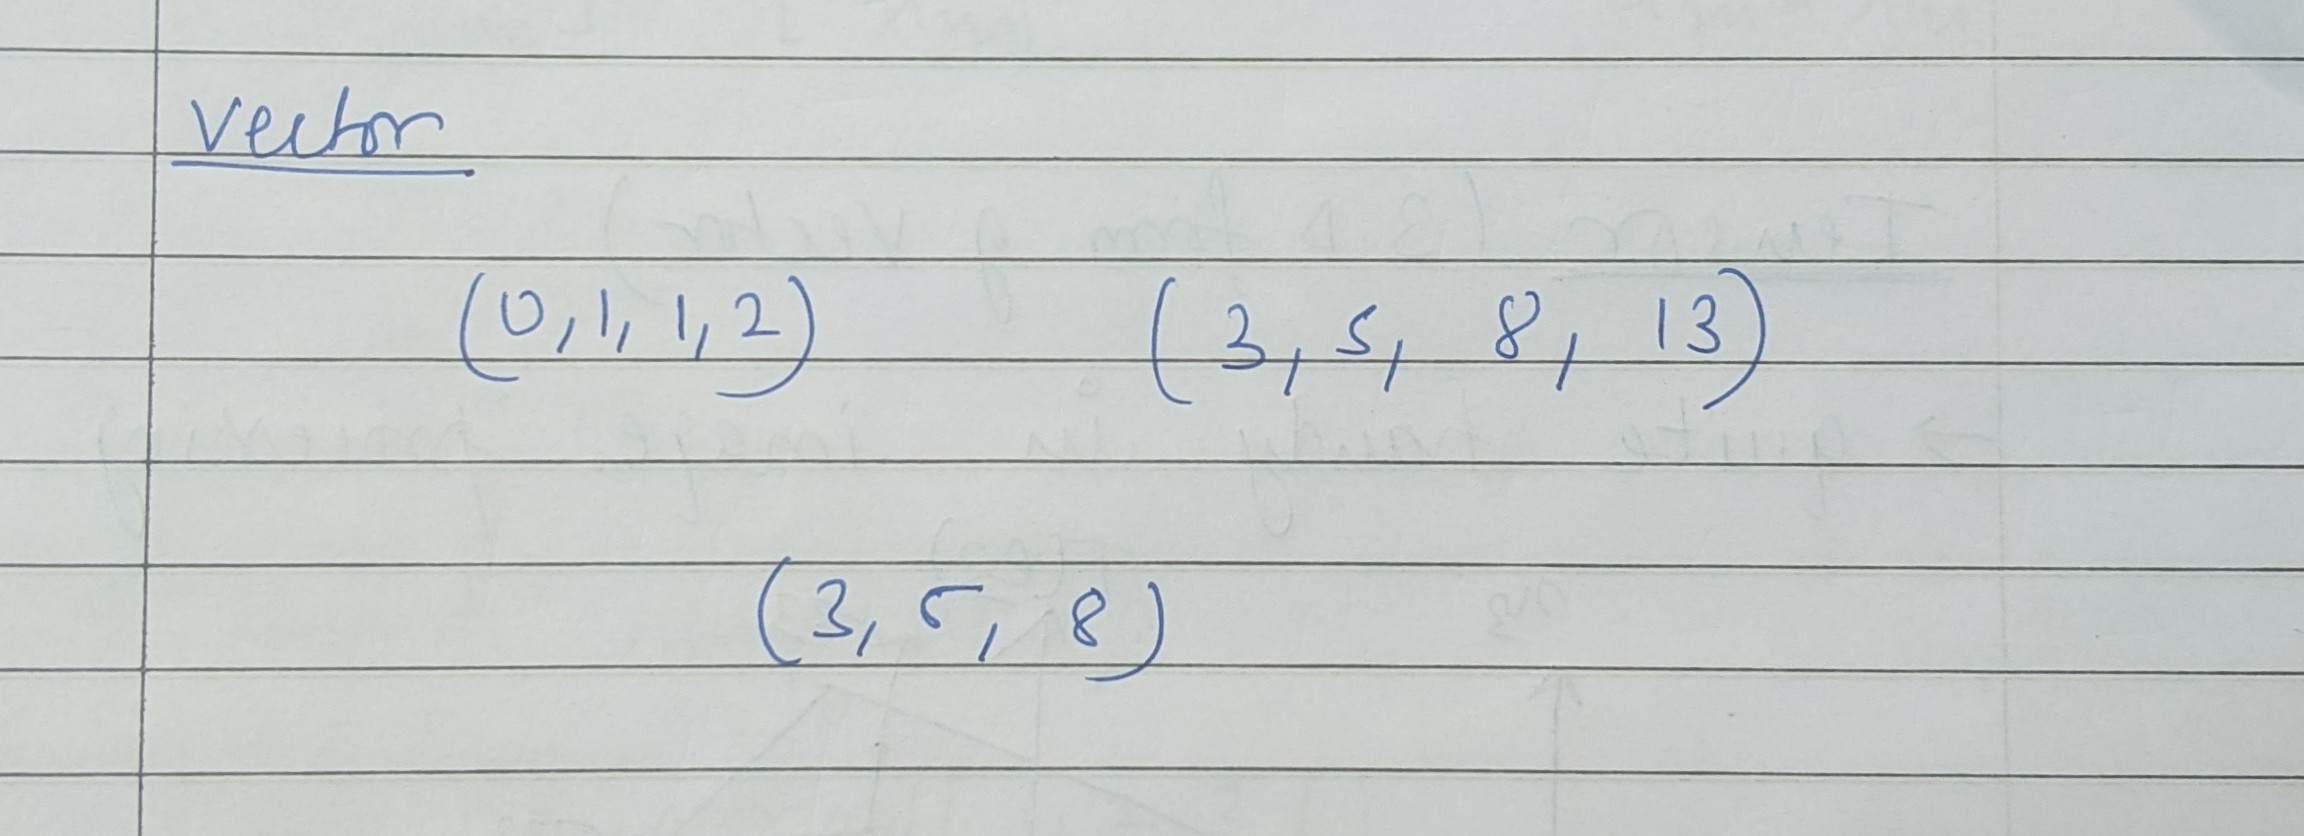 vector
(0,1,1,2) (3,5,8,13)
(3,5,8)